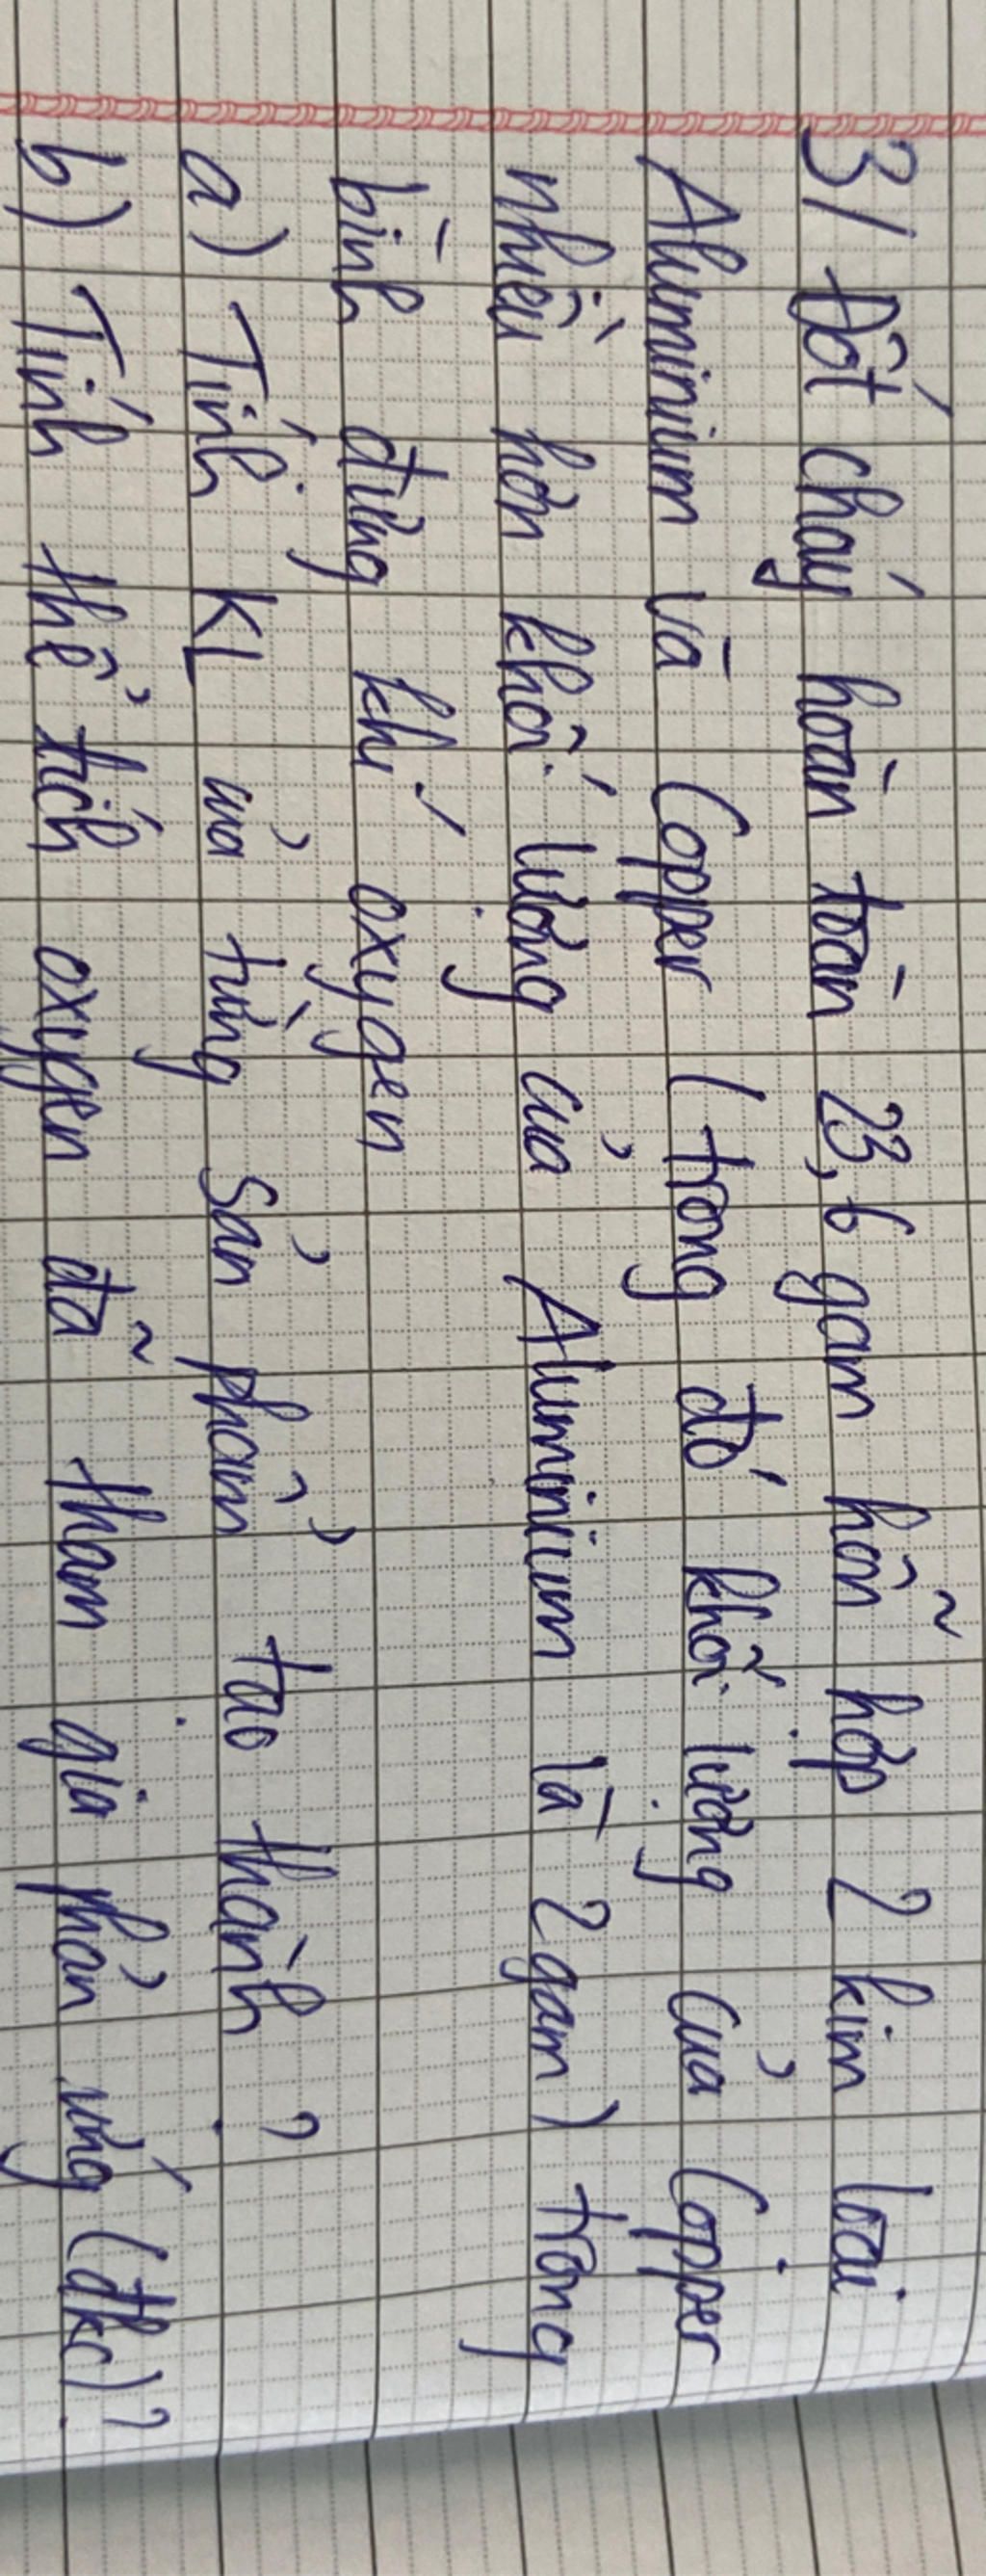 3/ Đốt cháy hoàn toàn 23,6 gam hỗn hợp 2 kim loại
Aluminium và Copper (trong đó khối lượng của Copper
nhiều hơn khối lượng của Aluminium là 2gam) trong
bình đựng khí oxygen
a) Tính KL của từng sản phẩm tạo thành?
b) Tính thể tích oxygen đã tham gia phản ứng (đkc)?